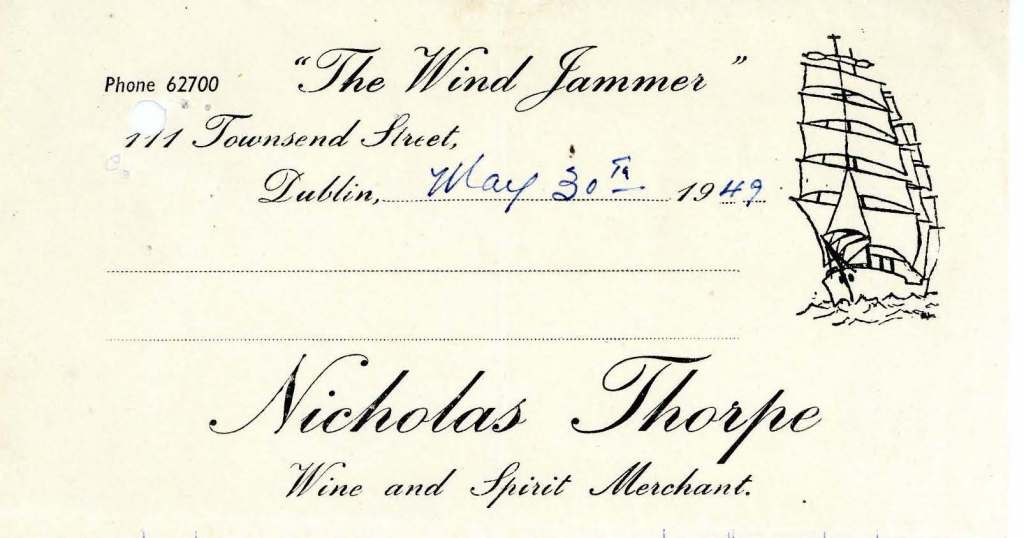 "The Wind Jammer"
Phone 62700
111 Townsend Street,
Dublin, May 30TH 1949
Nicholas Thorpe
Wine and Spirit Merchant.